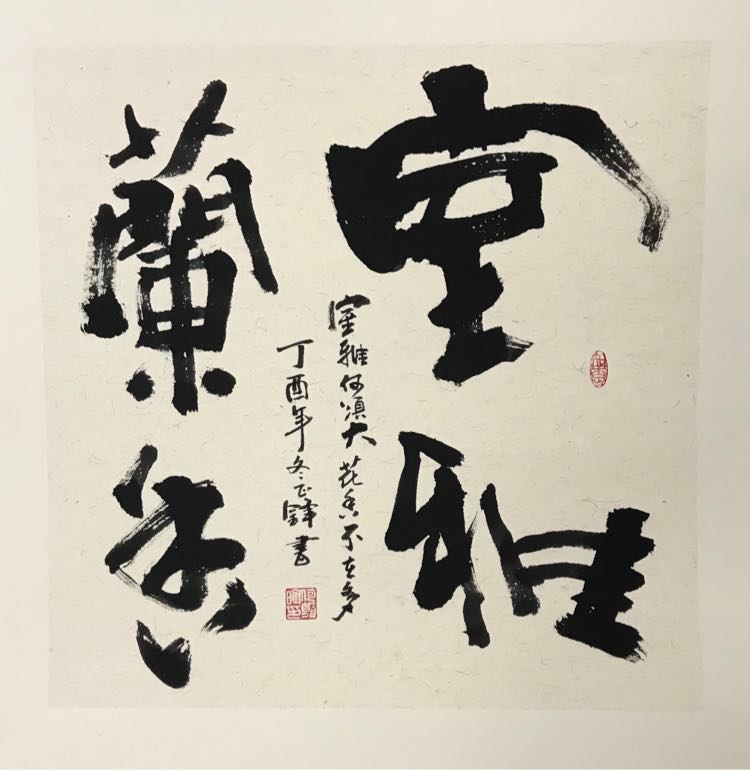 室雅
蘭香
室雅何須大花香不在多
丁酉年冬正鋒書